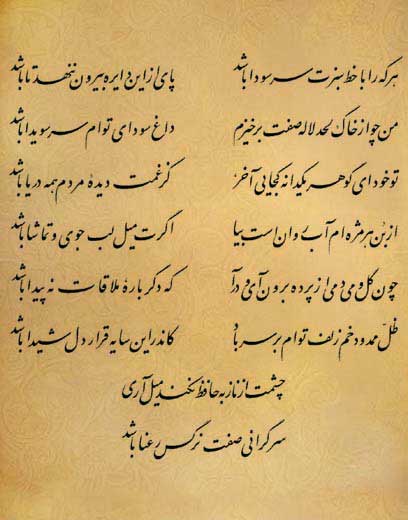 هر که را با خط سبزت سر سودا باشد پای از این دایره بیرون ننهد تا باشد
من چو از خاک لحد لاله صفت برخیزم داغ سودای توام سر سویدا باشد
تو خود ای گوهر یکدانه کجایی آخر کز غمت دیدهٔ مردم همه دریا باشد
از بن هر مژه‌ام آب روان است بیا اگرت میل لب جوی و تماشا باشد
چون گل و می دمی از پرده برون آی و درآ که دگرباره ملاقات نه پیدا باشد
ظلّ ممدود خم زلف توام بر سر باد کاندر این سایه قرار دل شیدا باشد
چشمت از ناز به حافظ نکند میل آری
سرگرانی صفت نرگس رعنا باشد